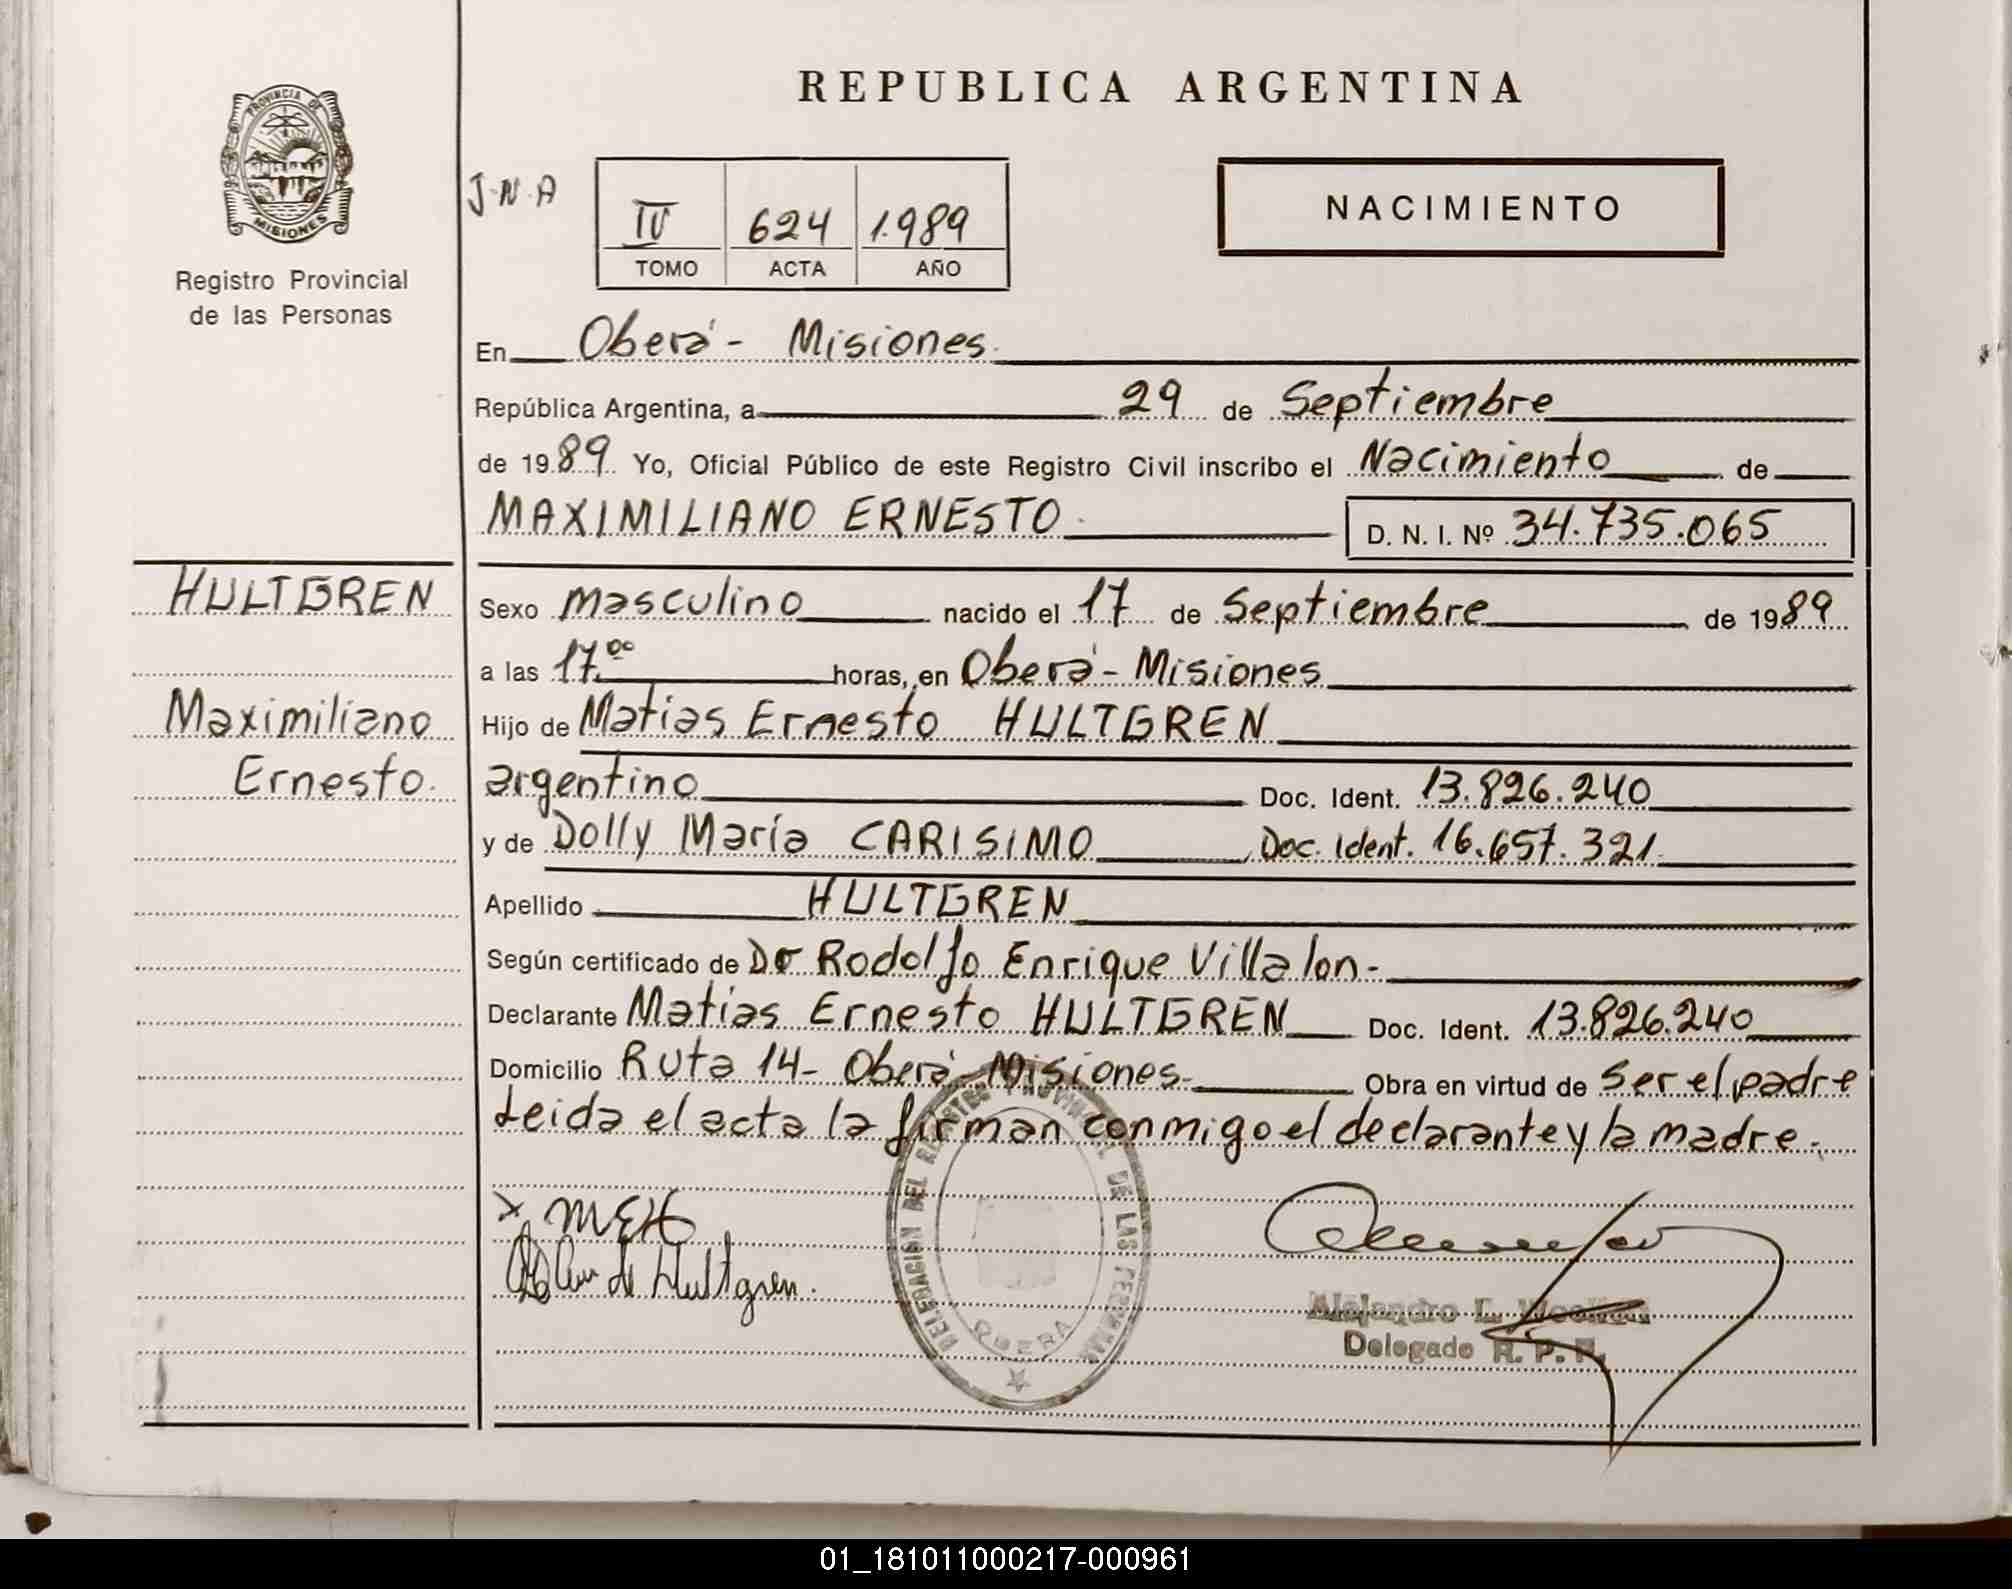 REPUBLICA ARGENTINA
PROVINCIA DE
MISIONES
Registro Provincial
de las Personas
J.N.A
IV 624 1.989
TOMO ACTA AÑO
NACIMIENTO
En Oberá - Misiones.
República Argentina, a 29 de Septiembre
de 1989 Yo, Oficial Público de este Registro Civil inscribo el Nacimiento de
MAXIMILIANO ERNESTO. D. N. I. Nº 34.735.065
HULTGREN
Maximiliano
Ernesto.
Sexo masculino nacido el 17 de Septiembre de 1989
a las 17.00 horas, en Oberá - Misiones
Hijo de Matias Ernesto HULTGREN
argentino Doc. Ident. 13.826.240
y de Dolly María CARISIMO Doc. Ident. 16.657.321.
Apellido HULTGREN
Según certificado de Dr Rodolfo Enrique Villalon-
Declarante Matias Ernesto HULTGREN Doc. Ident. 13.826.240
Domicilio Ruta 14- Oberá Misiones- Obra en virtud de ser el padre
Leida el acta la firman conmigo el declarante y la madre.
x MEH
de Hultgren.
DELEGACION DEL REGISTRO PROVINCIAL DE LAS PERSONAS
OBERA
Alejandro L.
Delegado R. P. P.
01_181011000217-000961